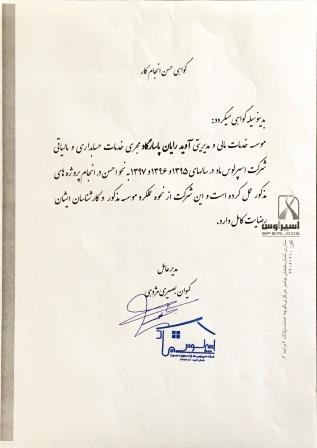 گواهی حسن انجام کار
بدینوسیله گواهی میگردد:
موسسه خدمات مالی و مدیریتی آوید رایان پاسارگاد مجری خدمات حسابداری و مالیاتی
شرکت اسپرلوس ماد در سالهای ۱۳۹۵ و ۱۳۹۶ و ۱۳۹۷ به نحو احسن در انجام پروژه های
مذکور عمل کرده است و این شرکت از نحوه عملکرد موسسه مذکور و کارشناسان ایشان
رضایت کامل دارد.
مدیر عامل
کیوان بصیری مژدهی
اسپرلوس
SPERLOOS